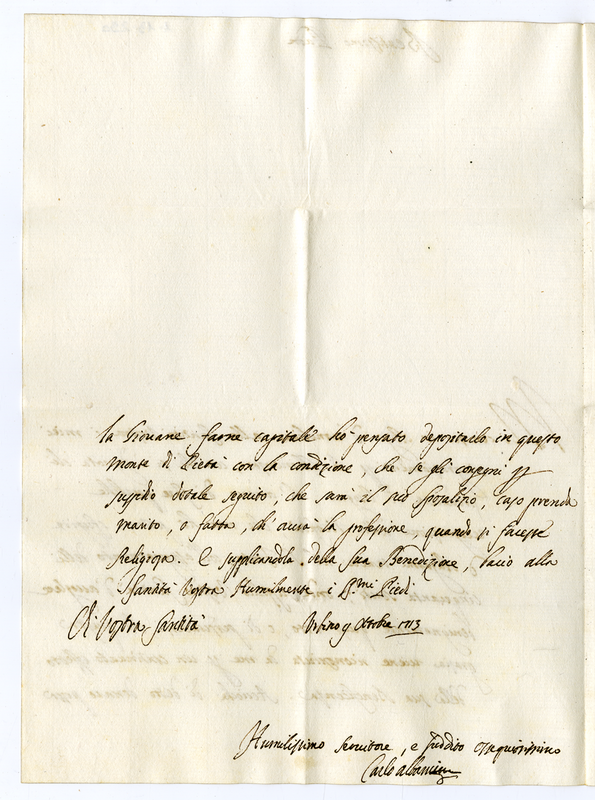 la Giovane farne capitale ho pensato depositarlo in questo
Monte di Pietà con la condizione, che se gli consegni p
sussidio dotale seguito, che sara il suo sposalizio, caso prenda
marito, o fatta, ch' avrà la professione, quando si facesse
Religiosa. E supplicandola della sua Benedizione, bacio alla
Santità Vostra Humilmente i S.mi Piedi
Di Vostra Santità
Urbino 9 Ottobre 1713
Humilissimo servitore, e suddito
Carlo Albani